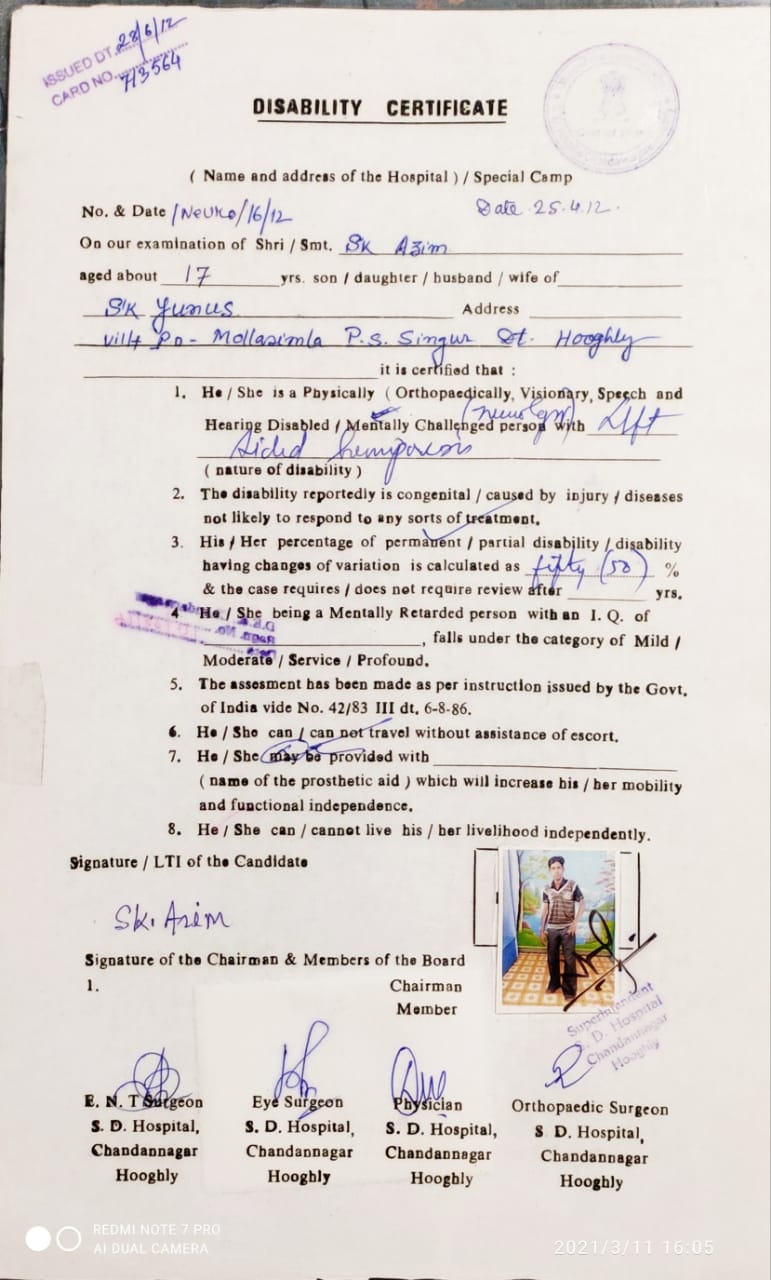 ISSUED DT. 28/6/12
CARD NO. 7/3564
DISABILITY CERTIFICATE
( Name and address of the Hospital ) / Special Camp
No. & Date /Neuro/16/12 Date 25.4.12.
On our examination of Shri / Smt. Sk Azim
aged about 17 yrs. son / daughter / husband / wife of
Sk Yunus Address
vill+ Po- Mollasimla P.S. Singur Dt. Hooghly
it is certified that :
1. He / She is a Physically ( Orthopaedically, Visionary, Speech and
Hearing Disabled / Mentally Challenged person with Left
sided hemiparesis
( nature of disability )
2. The disability reportedly is congenital / caused by injury / diseases
not likely to respond to any sorts of treatment.
3. His / Her percentage of permanent / partial disability / disability
having changes of variation is calculated as fifty (50) %
& the case requires / does not require review after yrs.
4 He / She being a Mentally Retarded person with an I. Q. of
, falls under the category of Mild /
Moderate / Service / Profound.
5. The assesment has been made as per instruction issued by the Govt.
of India vide No. 42/83 III dt. 6-8-86.
6. He / She can / can not travel without assistance of escort.
7. He / She may be provided with
( name of the prosthetic aid ) which will increase his / her mobility
and functional independence.
8. He / She can / cannot live his / her livelihood independently.
Signature / LTI of the Candidate
Sk. Azim
Signature of the Chairman & Members of the Board
1. Chairman
Member
Superintendent
S. D. Hospital
Chandannagar
Hooghly
E. N. T Surgeon Eye Surgeon Physician Orthopaedic Surgeon
S. D. Hospital, S. D. Hospital, S. D. Hospital, S. D. Hospital,
Chandannagar Chandannagar Chandannagar Chandannagar
Hooghly Hooghly Hooghly Hooghly
REDMI NOTE 7 PRO
AI DUAL CAMERA 2021/3/11 16:05